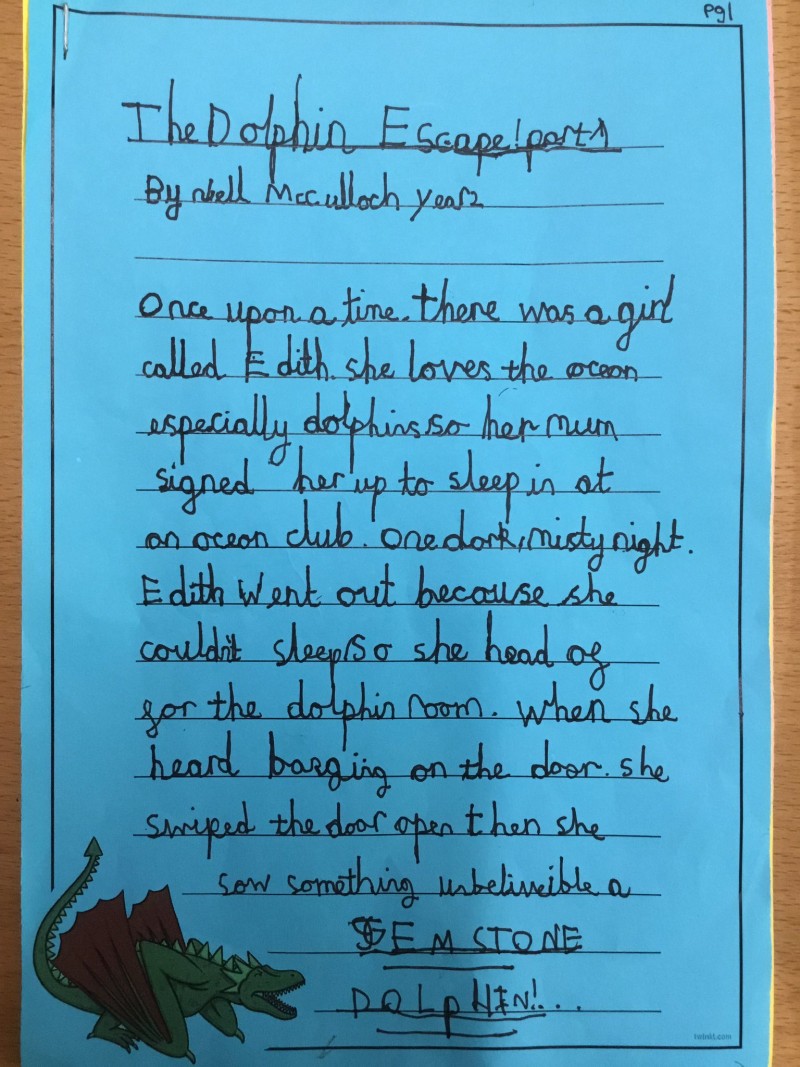 pg1
The Dolphin Escape! part 1
By Nell McCulloch year 2
Once upon a time. there was a girl
called Edith. she loves the ocean
especially dolphins so her mum
signed her up to sleep in at
an ocean club. one dark, misty night.
Edith went out because she
couldn't sleep so she head of
for the dolphin room. when she
heard barging on the door. she
swiped the door open then she
saw something unbeliveible a
GEMSTONE
DOLPHIN!...
twinkl.com